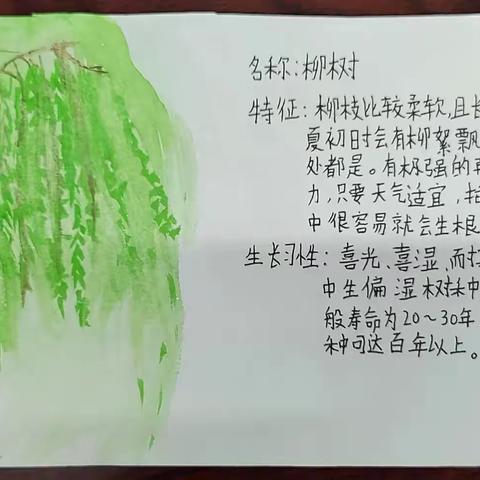 名称：柳树
特征：柳枝比较柔软，且长
夏初日时会有柳絮飘
处都是。有极强的再
力，只要天气适宜，
中很容易就会生根
生长习性：喜光、喜湿、而
中生偏湿树种
般寿命为20～30年
种可达百年以上。